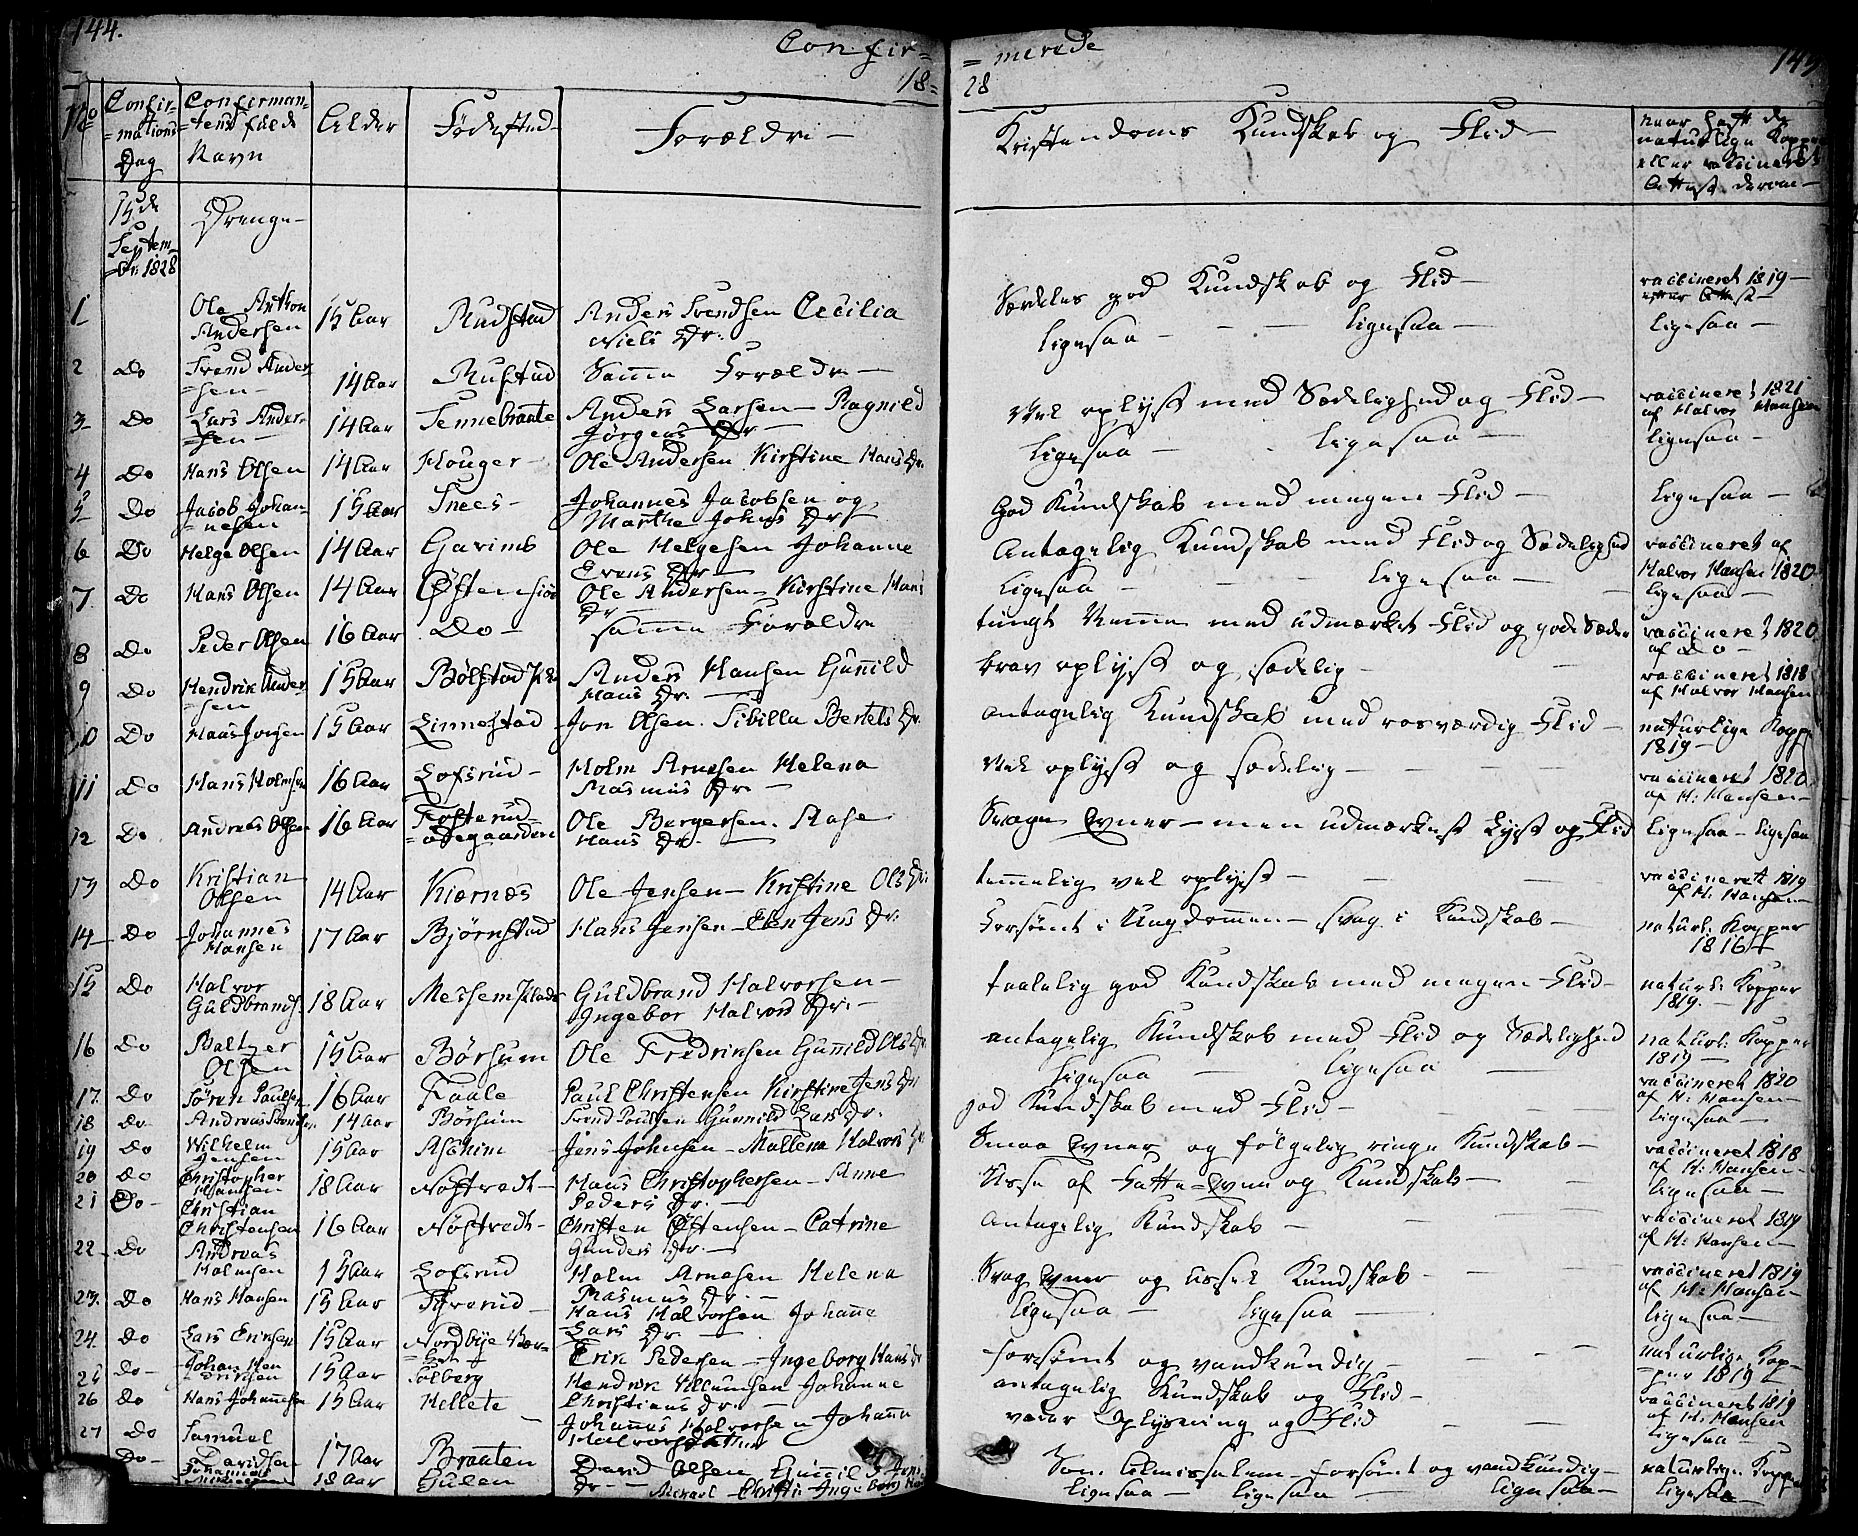 144.
Confir=
18=
No
Confir=
=mations
Dag
Confirman=
tens fulde
Navn
Alder
Fødested
Forældre
15de
Septem
br: 1828
Drenge
1
Ole Anthon
Andersen
15 Aar
Rudstad
Anders Svendsen Cecilia
Niels Dr:
2
Do
Svend Ander
=sen
14 Aar
Rustad
Samme Forældre
3
Do
Lars Ander
=sen
14 Aar
Tennebraate
Anders Larsen Ragnild
Jørgens Dr
4
Do
Hans Olsen
14 Aar
Houger
Ole Andersen Kirstine Hans Dr.
5
Do
Jacob Johan=
=nesen
15 Aar
Snees
Johannes Jacobsen og
Marthe Johns Dr
6
Do
Helge Olsen
14 Aar
Garims
Ole Helgesen Johanne
Evens Dr
7
Do
Hans Olsen
14 Aar
Østensiø
Ole Andersen Kirstine Hans
Dr
8
Do
Peder Olsen
16 Aar
Do
samme Forældre
9
Do
Hendrik Ander
=sen
15 Aar
Bølstad
Anders Hansen Gunnild
Hans Dr.
10
Do
Hans Jonsen
15 Aar
Linnestad
Jon Olsen. Sibilla Bertels Dr.
11
Do
Hans Holmsen
16 Aar
Lofsrud
Holm Arnesen Helena
Rasmus Dr.
12
Do
Andreas Olsen
16 Aar
Fosterud
=ødegaarden
Ole Børgersen. Aase
Hans Dr.
13
Do
Kristian
Olsen
14 Aar
Kiernæs
Ole Jensen Kristine Ols Dr:
14
Do
Johannes
Hansen
17 Aar
Bjørnstad
Hans Jensen Elen Jens Dr:
15
Do
Halvor
Guldbrands.
18 Aar
Messem
Guldbrand Halvorsen
Ingebor Halvors Dr:
16
Do
Baltzer
Olsen
15 Aar
Børsum
Ole Fredriksen Gunnild Ols Dr
17.
Do
Søren Paulsen
16 Aar
Faale
Paul Christensen Kirstine Jens Dr
18
Do
Andreas Svends.
14 Aar
Børsum
Svend Poulsen Gunnild Lars Dr.
19
Do
Wilhelm
Jensen
15 Aar
Aschim
Jens Johnsen Mallena Halvors Dr
20
Do
Christopher
Hansen
18 Aar
Nøstvedt
Hans Christophersen Anne
Peders Dr.
21
Do
Christian
Christensen
16 Aar
Nøstvedt
Christen Østensen Catrine
Gunders Dr.
22
Do
Andreas
Holmsen
15 Aar
Lofsrud
Holm Arnesen Helena
Rasmus Dr.
23.
Do
Hans Hansen
15 Aar
Hans Halvorsen Johanne
Lars Dr
24.
Do
Lars Eriksen
15 Aar
Nordbye
Erik Pedersen Ingeborg Hans Dr
25
Do
Johan Hen
driksen
15 Aar
Solberg
Hendrik Villumsen Johanne
Christians Dr.
26
Do
Hans Johannesen
15 Aar
Hellete
Johannes Halvorsen Johanne
Halvorsdatter
27
Do
Samuel
Davidsen
17 Aar
Braaten
David Olsen Gunnild
Dr
Do
Johannes
18 Aar
Gulen
Michael Ingeborg
=merede
28
145
Kristendoms Kundskab og Flid
naar haft de
naturlige Kopper
eller vaccineret
Attest derom
Særdeles god Kundskab og Flid
vaccineret 1819
efter Attest
ligesaa ligesaa
ligesaa
Vel oplyst med Sædelighed og Flid
vaccineret 1821
af Halvor Hansen
Ligesaa ligesaa
ligesaa
God Kundskab med megen Flid
ligesaa
Antagelig Kundskab med Flid og Sædelighed
vaccineret af
Halvor Hansen 1820
ligesaa ligesaa
ligesaa
tungt Nemme med udmærket Flid og gode Sæder
vaccineret 1820
af Do
brav oplyst og sædelig
vaccineret 1818
af Halvor Hansen
antagelig Kundskab med rosværdig Flid
naturlige Kopper
1819
Vel oplyst og sædelig
vaccineret 1820
af H: Hansen
Svage Evner men udmærket Lyst og Flid
ligesaa ligesaa
temmelig vel oplyst
vaccineret 1819
af H. Hansen
Forsømt i Ungdommen svag i Kundskab
naturl: Kopper
1816
taalelig god Kundskab med megen Flid
naturl: Kopper
1819.
antagelig Kundskab med Flid og Sædelighed
naturl: Kopper
1819
ligesaa ligesaa
vaccineret 1820
af H: Hansen
god Kundskab med Flid
ligesaa
Smaa Evner og følgelig ringe Kundskab
vaccineret 1818
af H: Hansen
Usse af Fatte=Evne og Kundskab
ligesaa
Antagelig Kundskab
vaccineret 1819
af H: Hansen
Svag Evner og ussel Kundskab
vaccineret 1819
af H: Hansen
ligesaa ligesaa
ligesaa
forsømt og vandkundig
naturlige Kop=
=per 1819
antagelig Kundskab og Flid
vaccineret 1819
af H: Hansen
Oplysning og Flid
ligesaa
Som forsømt og vandkundig
naturlige Kopper
ligesaa ligesaa ligesaa
ligesaa